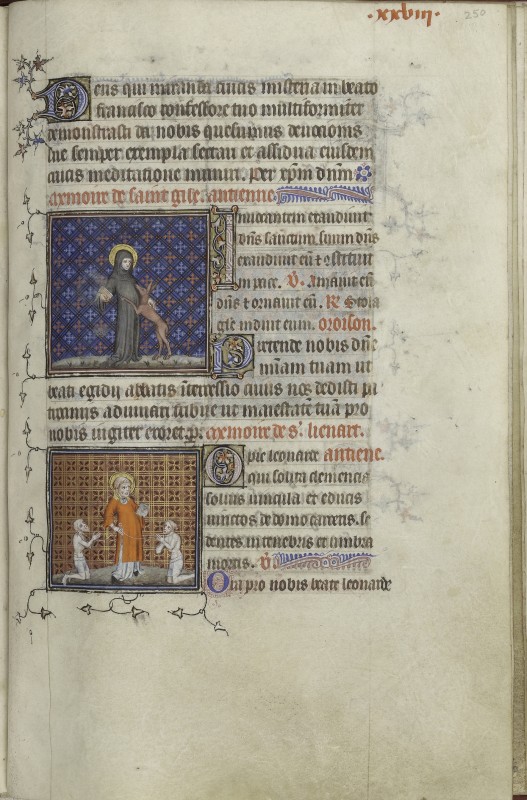 .xxviii.
250
Deus qui miranda crucis misteria in beato
francisco confessore tuo multiformiter
demonstrasti da nobis quesumus deuocionis
sue semper exempla sectari et assidua eiusdem
crucis meditatione muniri. Per xpm dnm
memoire de saint gile. antienne.
Inuocantem exaudiuit
dns sanctum suum dns
exaudiuit eu &
in pace. V. Amauit eu
dns & ornauit eu. R. Stola
glē induit eum. oroison.
Pretende nobis dne
miam tuam ut
beati egidii abbatis intercessio cuius nos dedisti pa
trociniis adiuuari tribue ut maiestate tua pro
nobis iugiter exoret. p. memoire de s. lienart.
O pie leonarde antiene.
qui solita clemencia
soluis uincula et educis
uinctos de domo carceris. se
dentes in tenebris et umbra
mortis. V.
Ora pro nobis beate leonarde